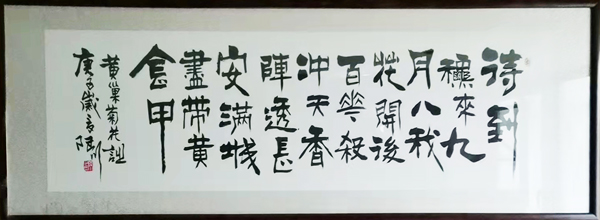 待到
龝來九
月八我
花開後
百花殺
冲天香
陣透長
安滿城
盡帶黃
金甲
黃巢菊花詩
庚子歲